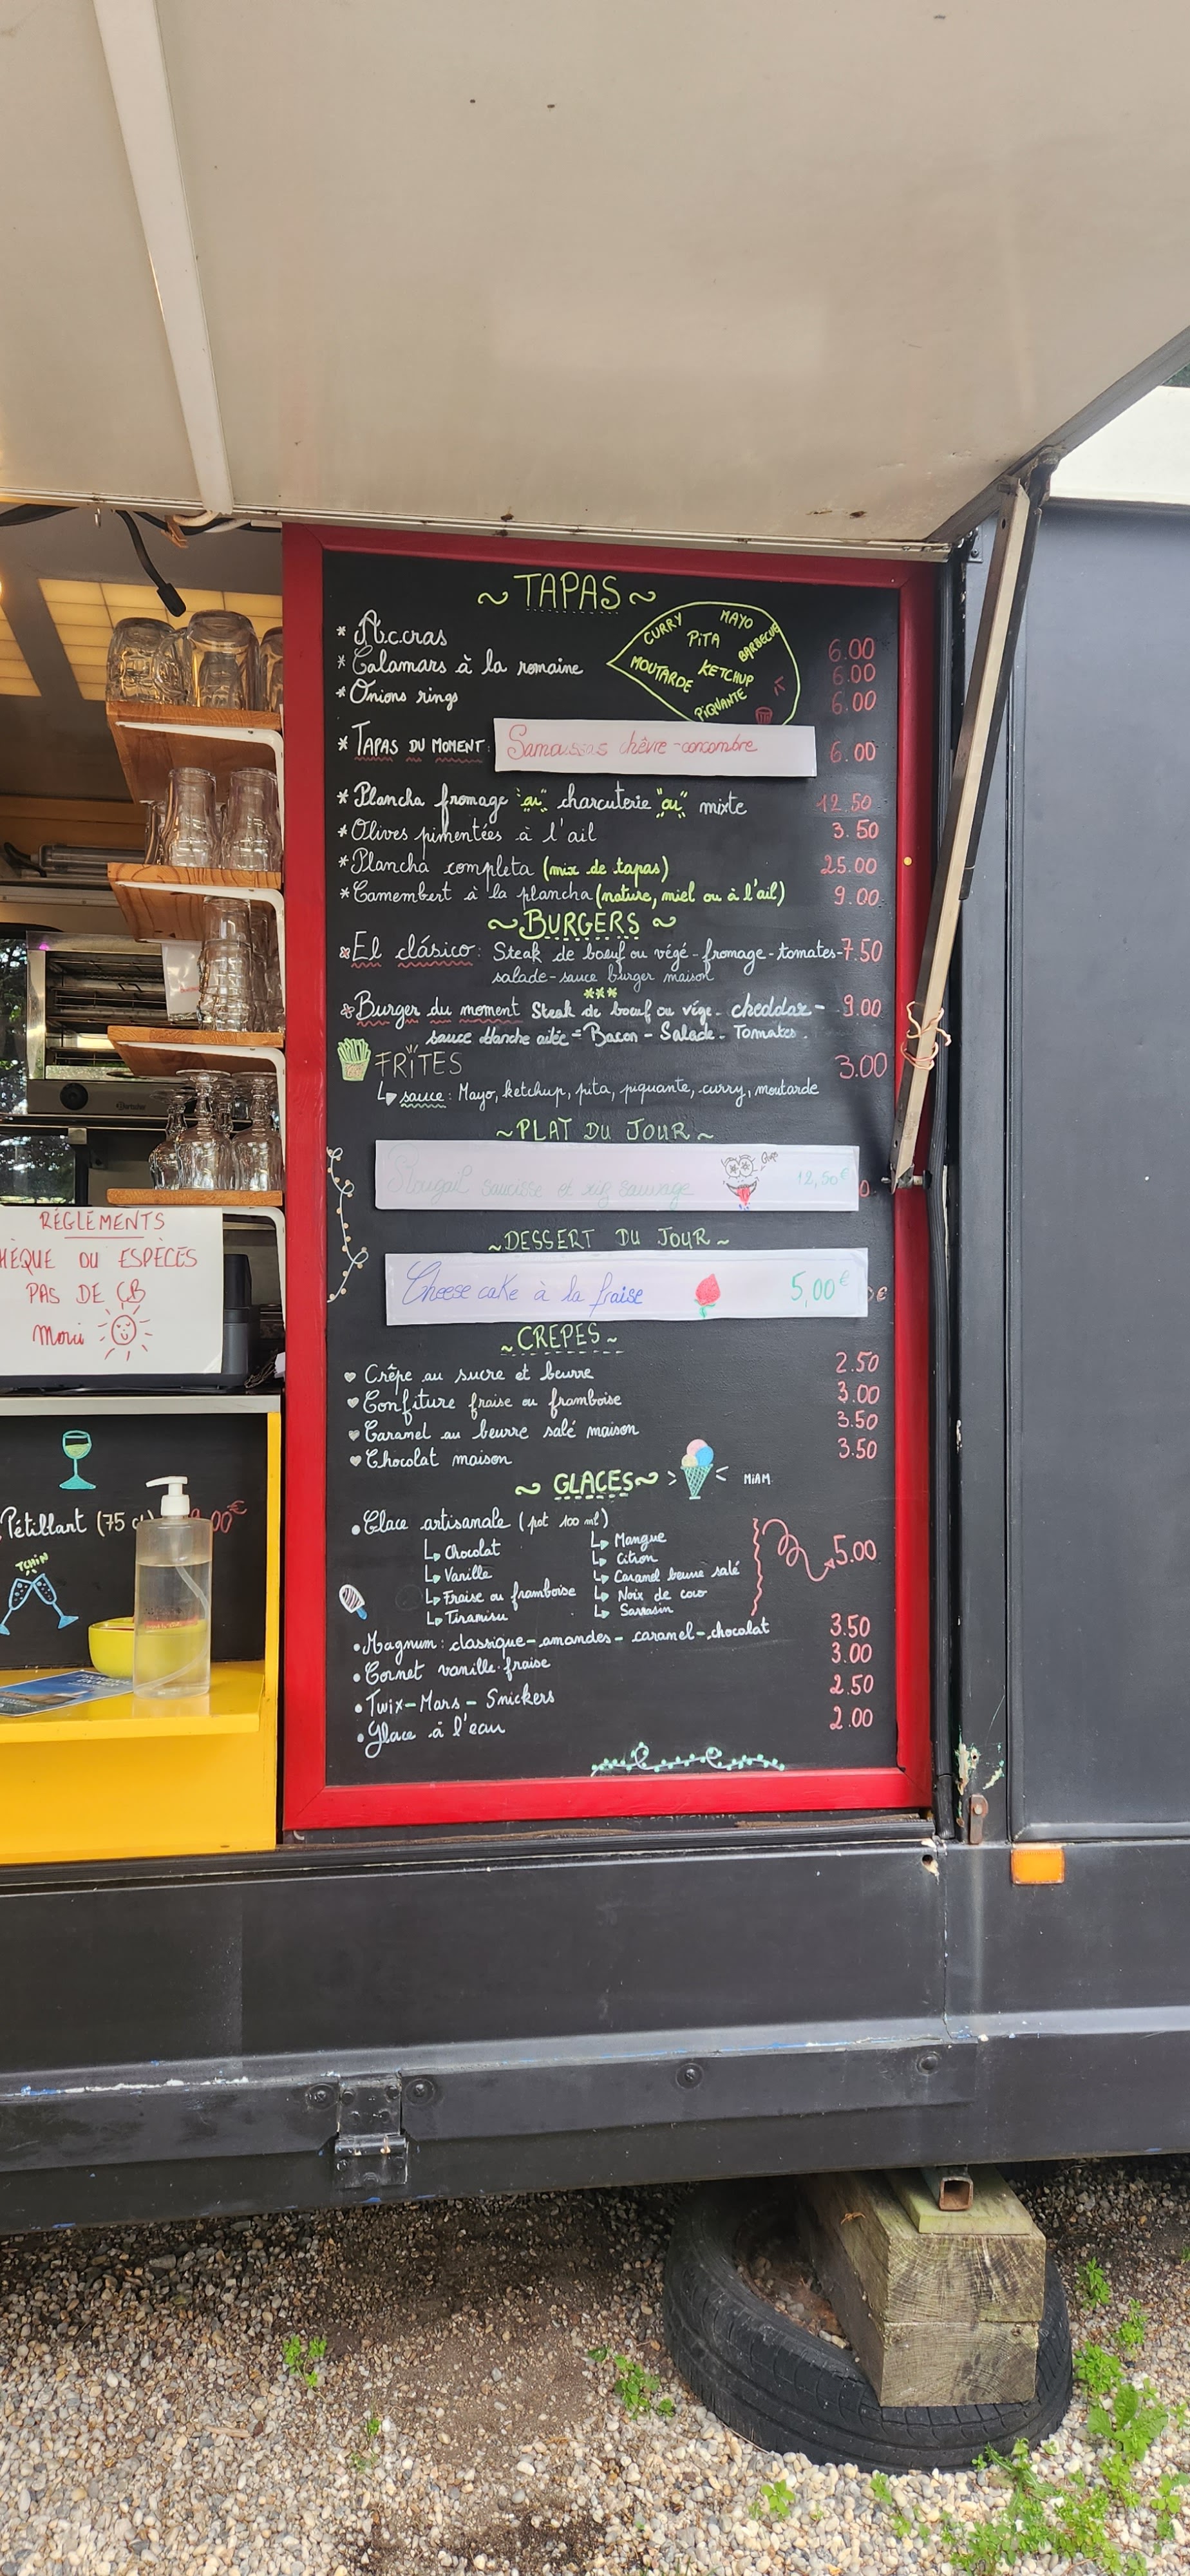 ~ TAPAS ~
* Accras 6.00
* Calamars à la romaine 6.00
* Onions rings 6.00
CURRY MAYO
PiTA BARBECUE
MOUTARDE KETCHUP
PiQUANTE
* TAPAS DU MOMENT: Samoussas chèvre-concombre 6.00
* Plancha fromage "ou" charcuterie "ou" mixte 12.50
* Olives pimentées à l'ail 3.50
* Plancha completa (mix de tapas) 25.00
* Camembert à la plancha (nature, miel ou à l'ail) 9.00
~ BURGERS ~
* El clásico: Steak de boeuf ou végé - fromage - tomates - 7.50
salade - sauce burger maison
***
* Burger du moment Steak de boeuf ou végé - cheddar - 9.00
sauce blanche ailée - Bacon - Salade - Tomates.
FRiTES 3.00
sauce: Mayo, ketchup, pita, piquante, curry, moutarde
~ PLAT DU JOUR ~
Rougail saucisse et riz sauvage 12,50€
~ DESSERT DU JOUR ~
Cheese cake à la fraise 5,00€
~ CREPES ~
Crêpe au sucre et beurre 2.50
Confiture fraise ou framboise 3.00
Caramel au beurre salé maison 3.50
Chocolat maison 3.50
~ GLACES ~ MiAM
• Glace artisanale (pot 100 ml) 5.00
Chocolat Mangue
Vanille Citron
Fraise ou framboise Caramel beurre salé
Tiramisu Noix de coco
Sarrasin
• Magnum: classique - amandes - caramel - chocolat 3.50
• Cornet vanille-fraise 3.00
• Twix - Mars - Snickers 2.50
• Glace à l'eau 2.00
RÉGLEMENTS
HÈQUE OU ESPÈCES
PAS DE CB
Merci
Pétillant (75 cl)
TCHiN